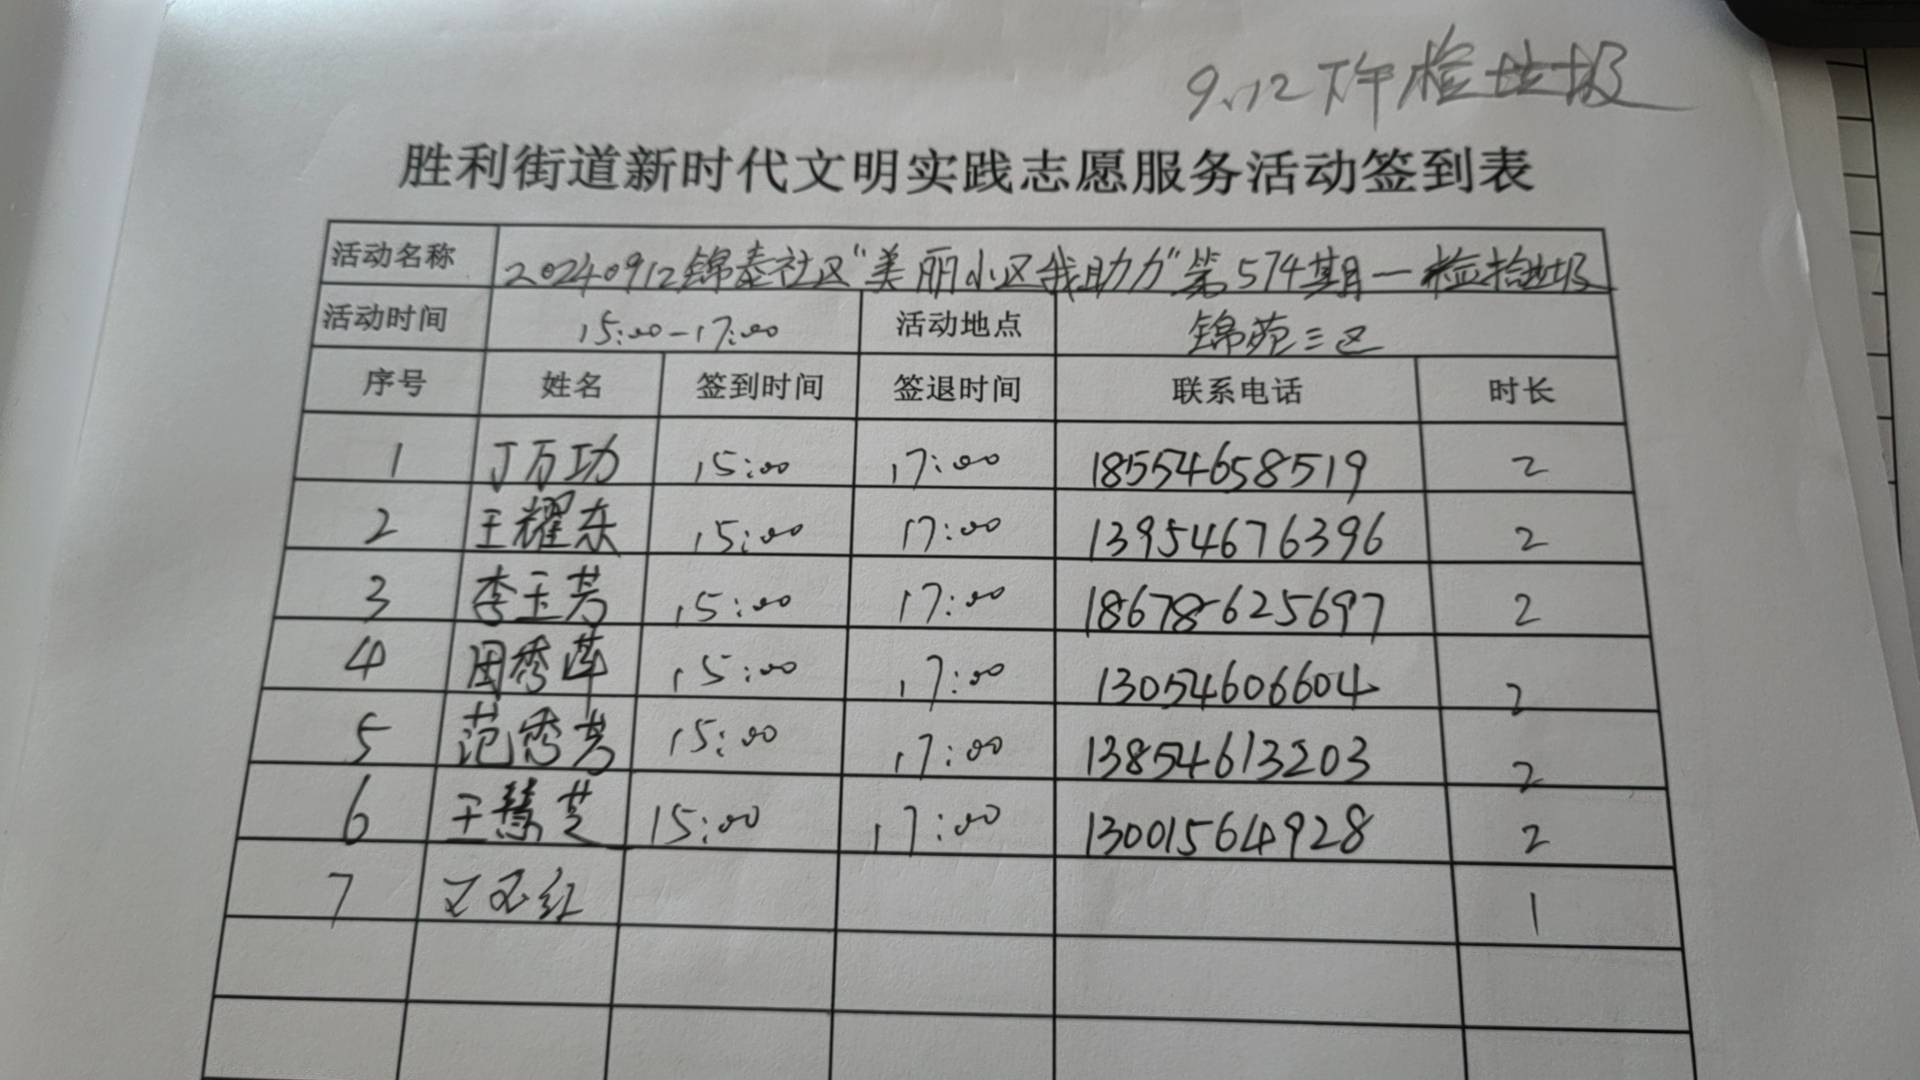 9.12下午检垃圾
胜利街道新时代文明实践志愿服务活动签到表
活动名称 20240912锦泰社区"美丽小区我助力"第574期一检拾垃圾
活动时间 15:00-17:00 活动地点 锦苑三区
序号 姓名 签到时间 签退时间 联系电话 时长
1 丁万功 15:00 17:00 18554658519 2
2 王耀东 15:00 17:00 13954676396 2
3 李玉芳 15:00 17:00 18678625697 2
4 田秀莲 15:00 17:00 13054606604 2
5 范秀芳 15:00 17:00 13854613203 2
6 王慧芝 15:00 17:00 13001564928 2
7 红 1